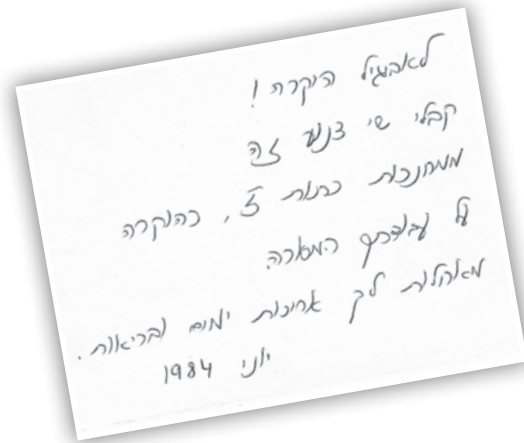 לאביגיל היקרה!
קבלי שי צנוע זה
ממחנכות כתות ז', כהוקרה
על עבודתך המסורה.
מאחלות לך אריכות ימים ובריאות.
יוני 1984